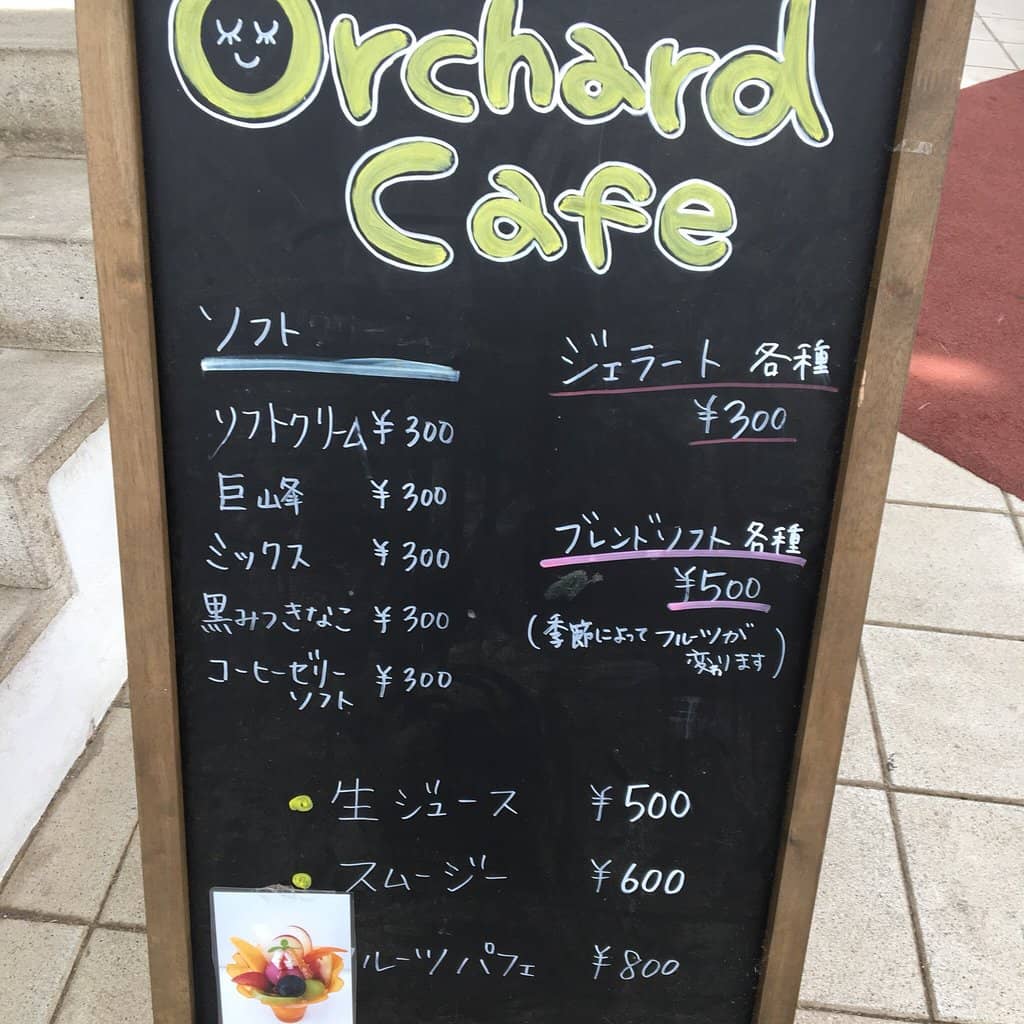 Orchard
Cafe
ソフト
ソフトクリーム ¥300
巨峰 ¥300
ミックス ¥300
黒みつきなこ ¥300
コーヒーゼリー
ソフト ¥300
ジェラート 各種
¥300
ブレンドソフト 各種
¥500
(季節によって フルーツが
変わります)
生ジュース ¥500
スムージー ¥600
ルーツパフェ ¥800